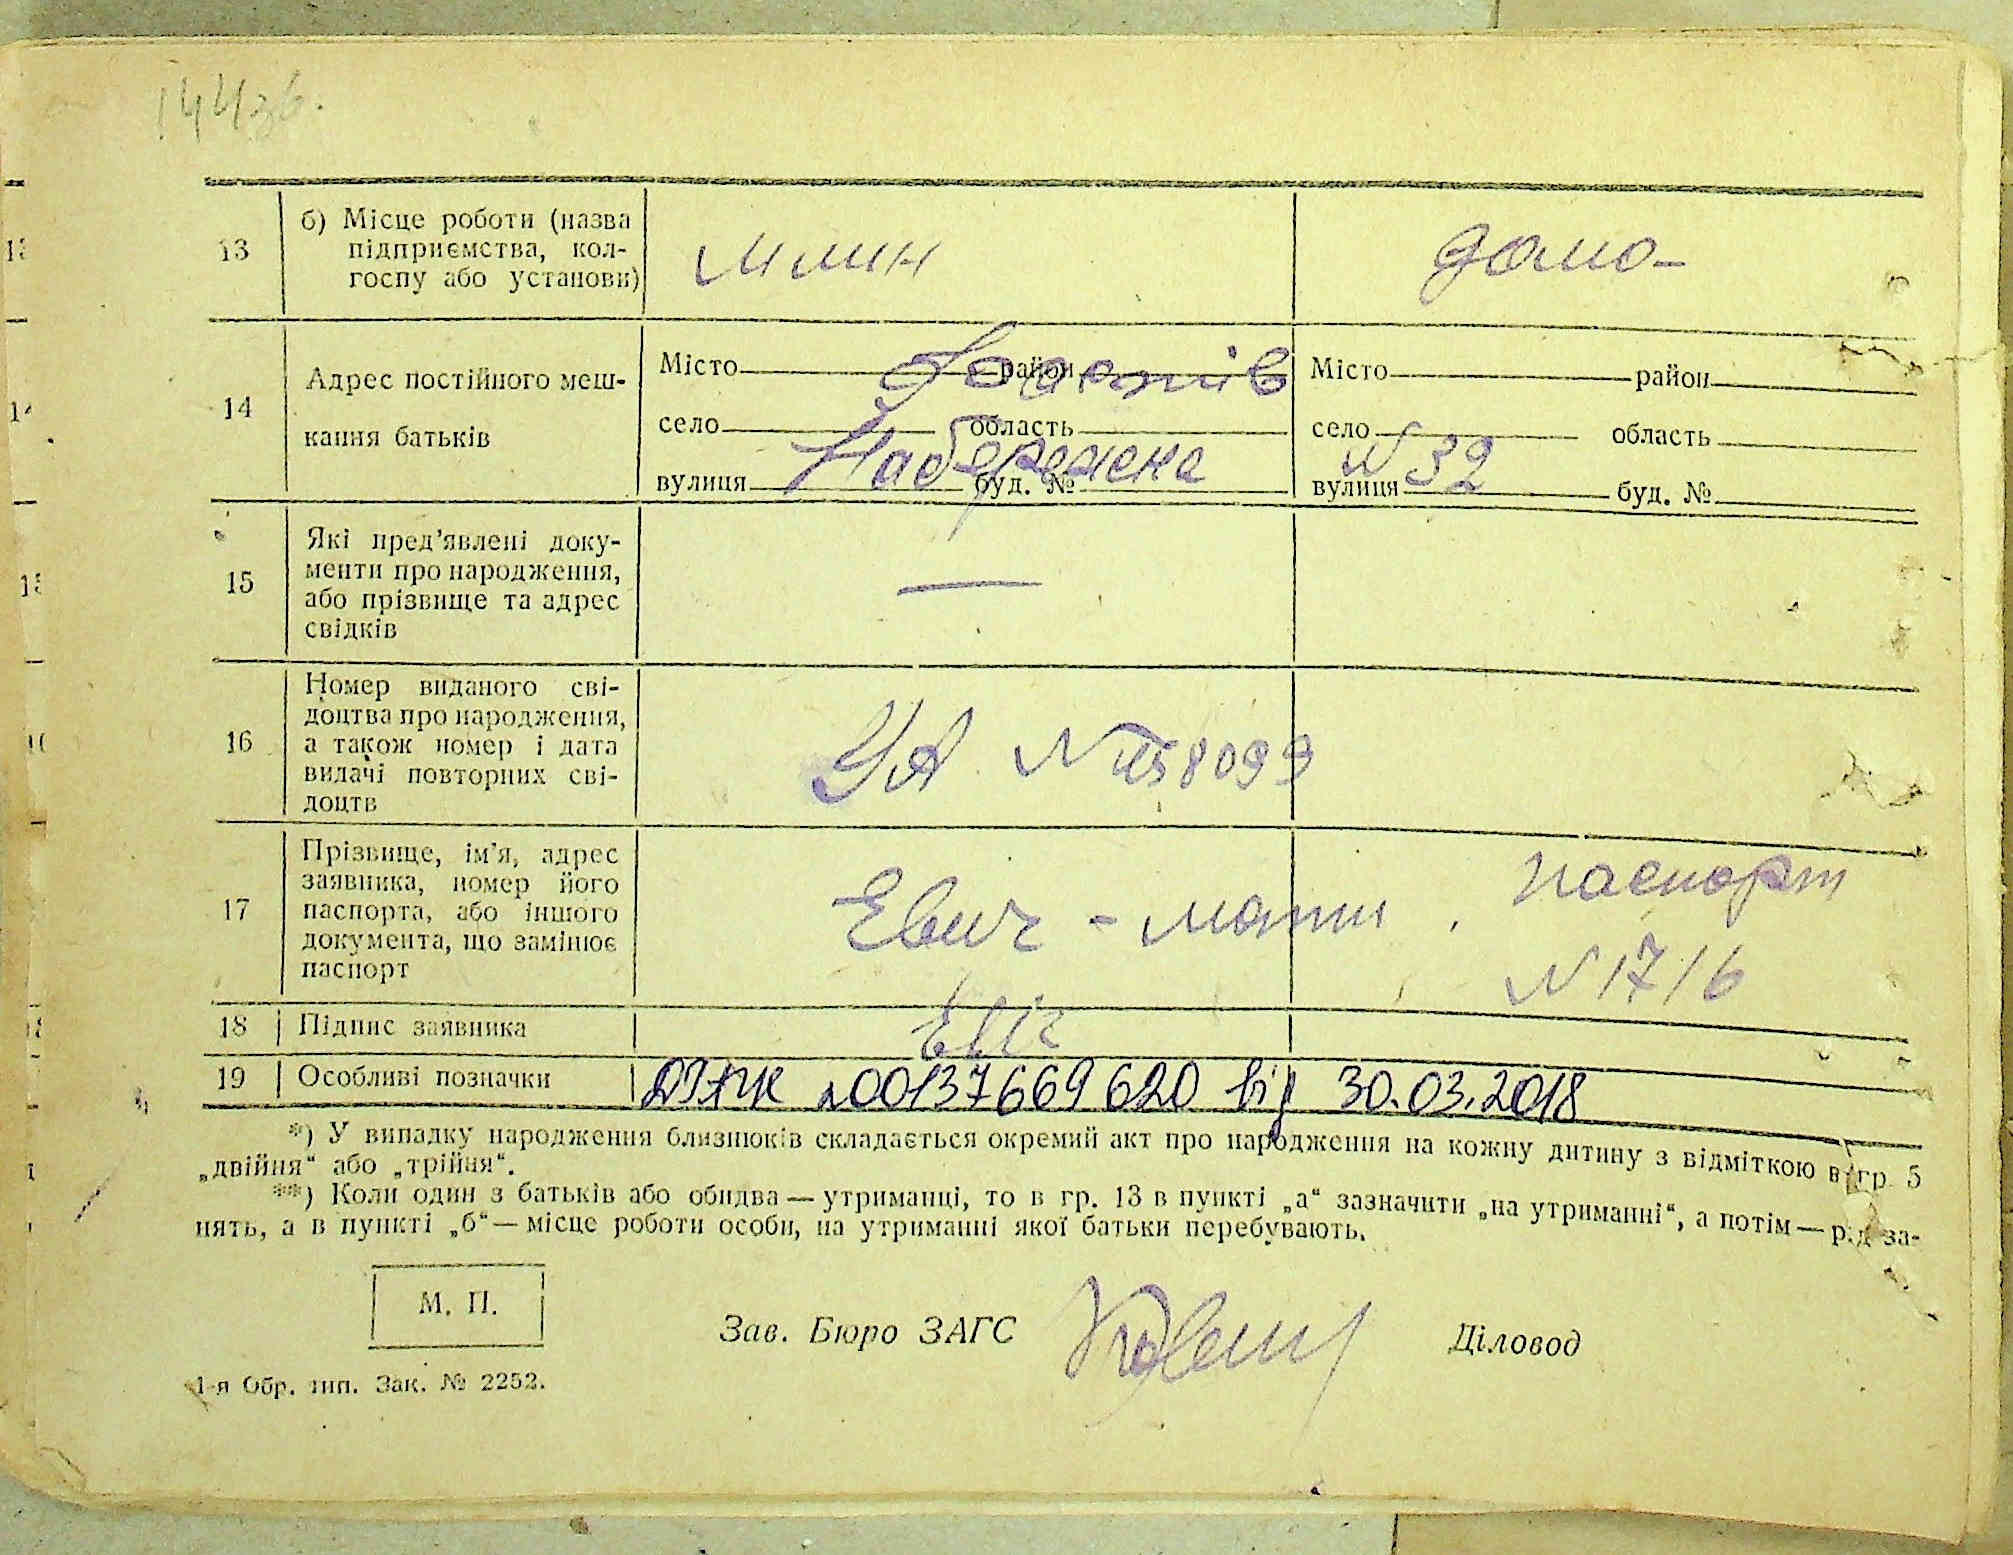 144зв.
13
б) Місце роботи (назва
підприємства, кол-
госпу або установи)
млин
домо-
14
Адрес постійного меш-
кання батьків
Місто район
Фастів
село область
вулиця буд. №
Набережна
Місто район
село область
N 32
вулиця буд. №
15
Які пред’явлені доку-
менти про народження,
або прізвище та адрес
свідків
—
16
Номер виданого сві-
доцтва про народження,
а також номер і дата
видачі повторних сві-
доцтв
УА N 8099
17
Прізвище, ім’я, адрес
заявника, номер його
паспорта, або іншого
документа, що замінює
паспорт
Евич - мати, паспорт
N 1716
18 Підпис заявника
19 Особливі позначки
00137669620 від 30.03.2018
*) У випадку народження близнюків складається окремий акт про народження на кожну дитину з відміткою в гр. 5
„двійня“ або „трійня“.
**) Коли один з батьків або обидва — утриманці, то в гр. 13 в пункті „а“ зазначити „на утриманні“, а потім — рід за-
нять, а в пункті „б“ — місце роботи особи, на утриманні якої батьки перебувають.
М. П.
Зав. Бюро ЗАГС
Діловод
1-я Обр. тип. Зак. № 2252.